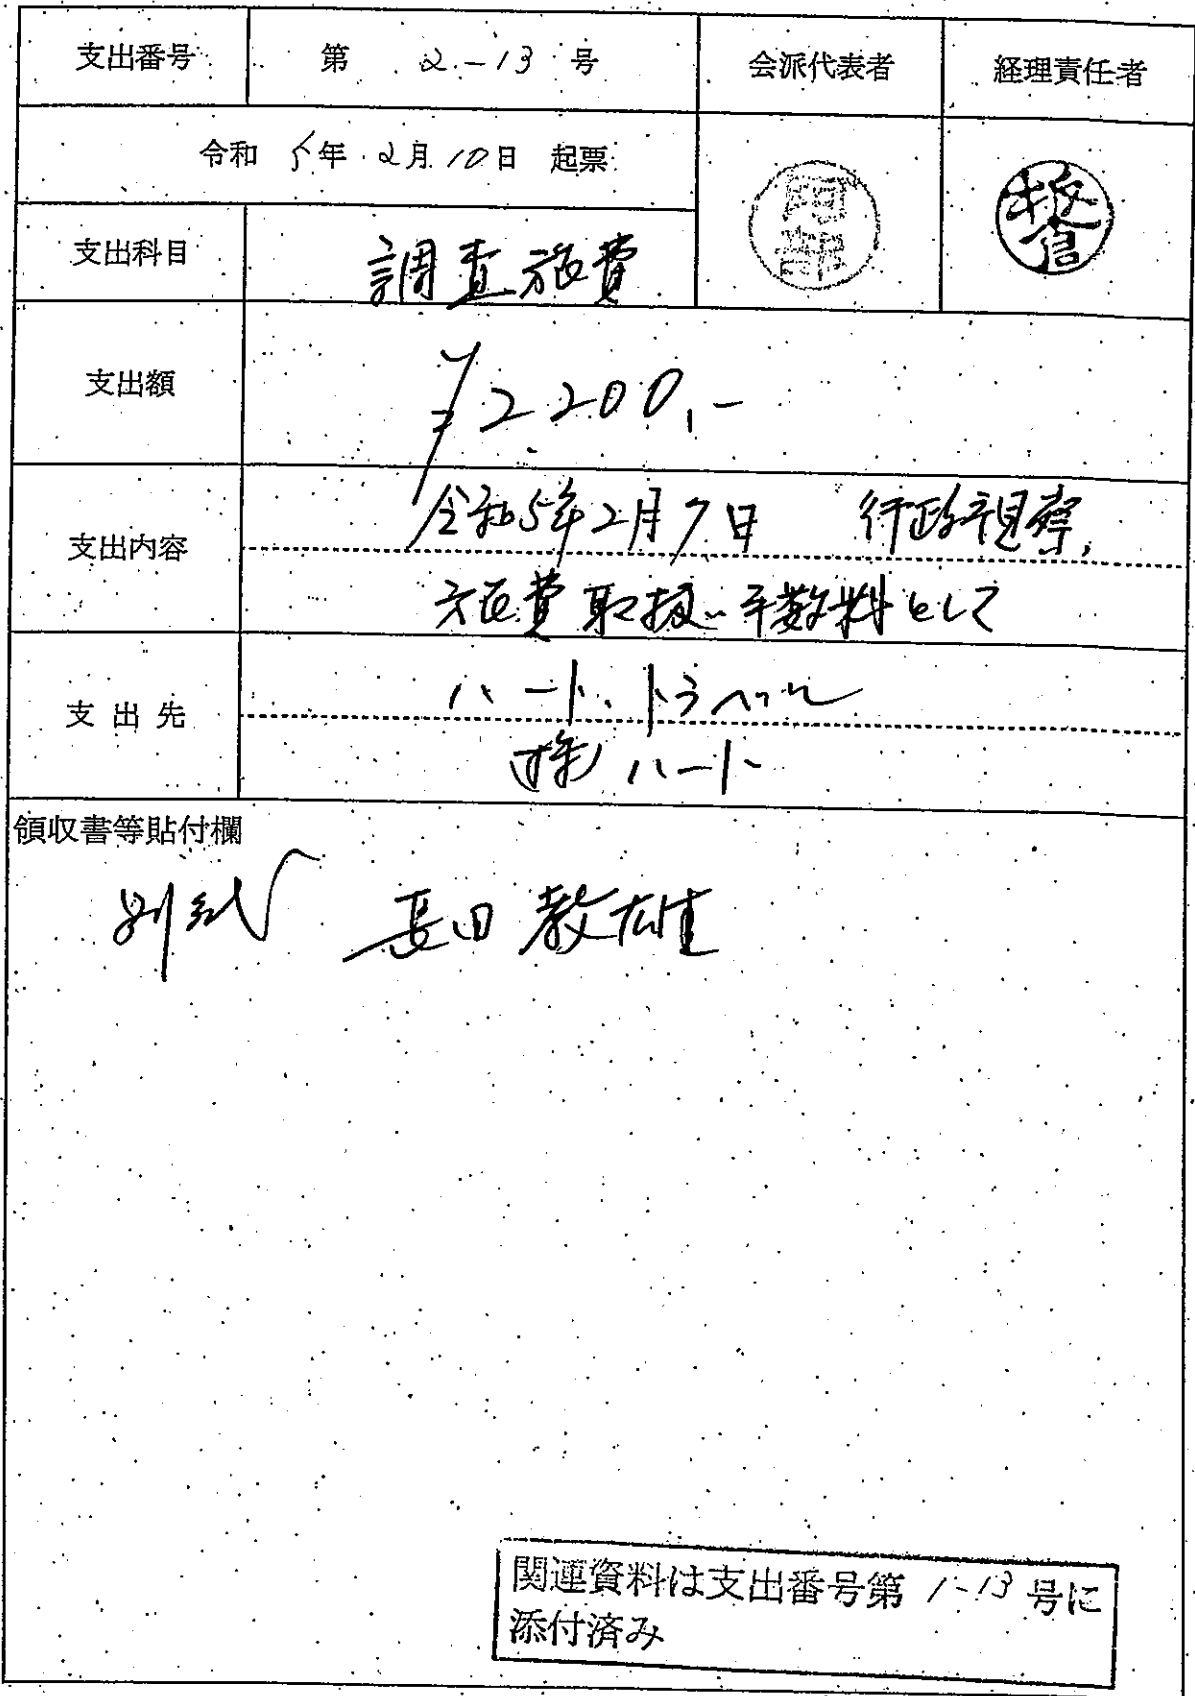 支出番号 第 2-13 号 会派代表者 経理責任者
令和 5年 2月 10日 起票
阿部
板倉
支出科目 調査旅費
支出額 ¥2200.-
支出内容 令和5年2月7日 行政視察、
旅費取扱い手数料として
支出先 ハート・トラベル
(株)ハート
領収書等貼付欄
別紙 長田教雄
関連資料は支出番号第 1-13 号に
添付済み